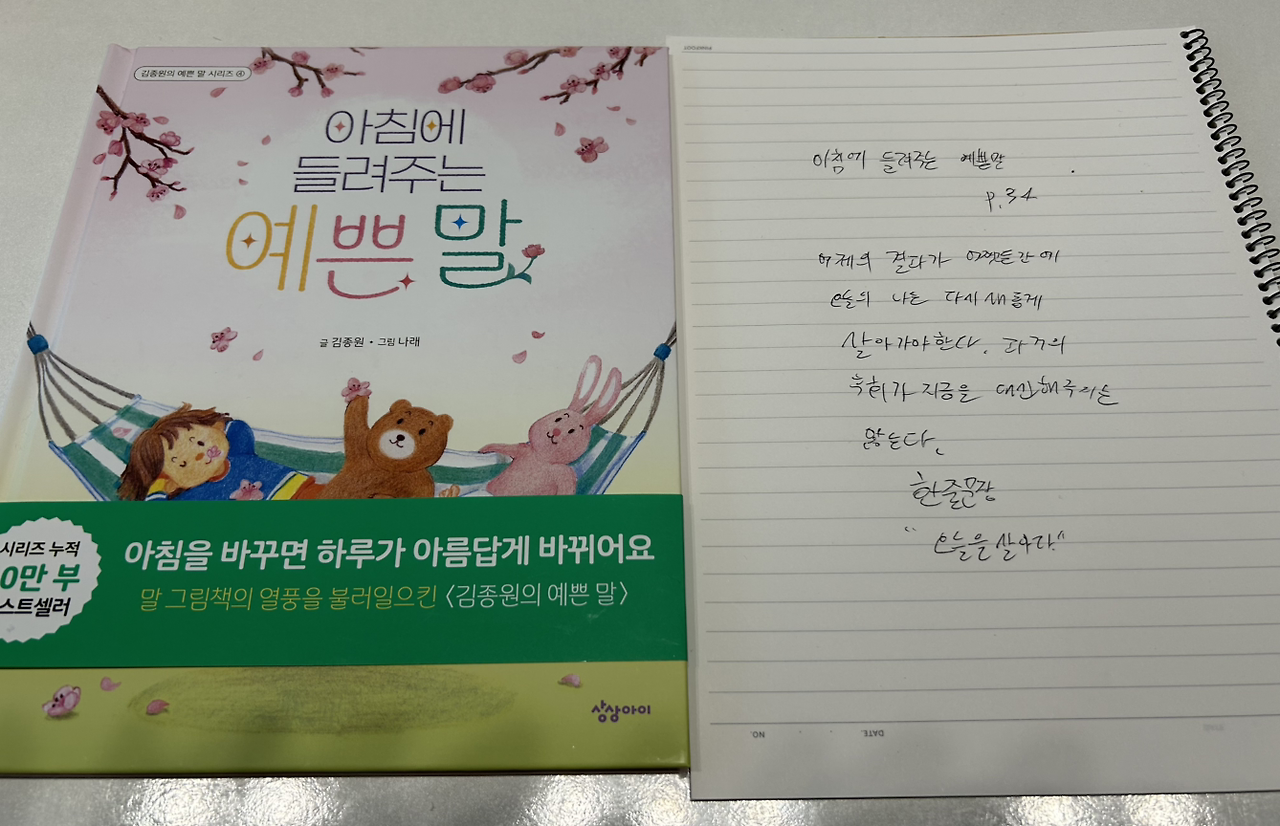 김종원의 예쁜 말 시리즈 ④
아침에
들려주는
예쁜 말
글 김종원 • 그림 나래
시리즈 누적
0만 부
스트셀러
아침을 바꾸면 하루가 아름답게 바뀌어요
말 그림책의 열풍을 불러일으킨 〈김종원의 예쁜 말〉
상상아이
아침에 들려주는 예쁜말
p.34
어제의 결과가 어쨌든간에
오늘의 나는 다시 새롭게
살아가야한다. 과거의
후회가 지금을 대신해주지는
않는다.
한줄문장
"오늘을 살아라."
DATE.
NO.